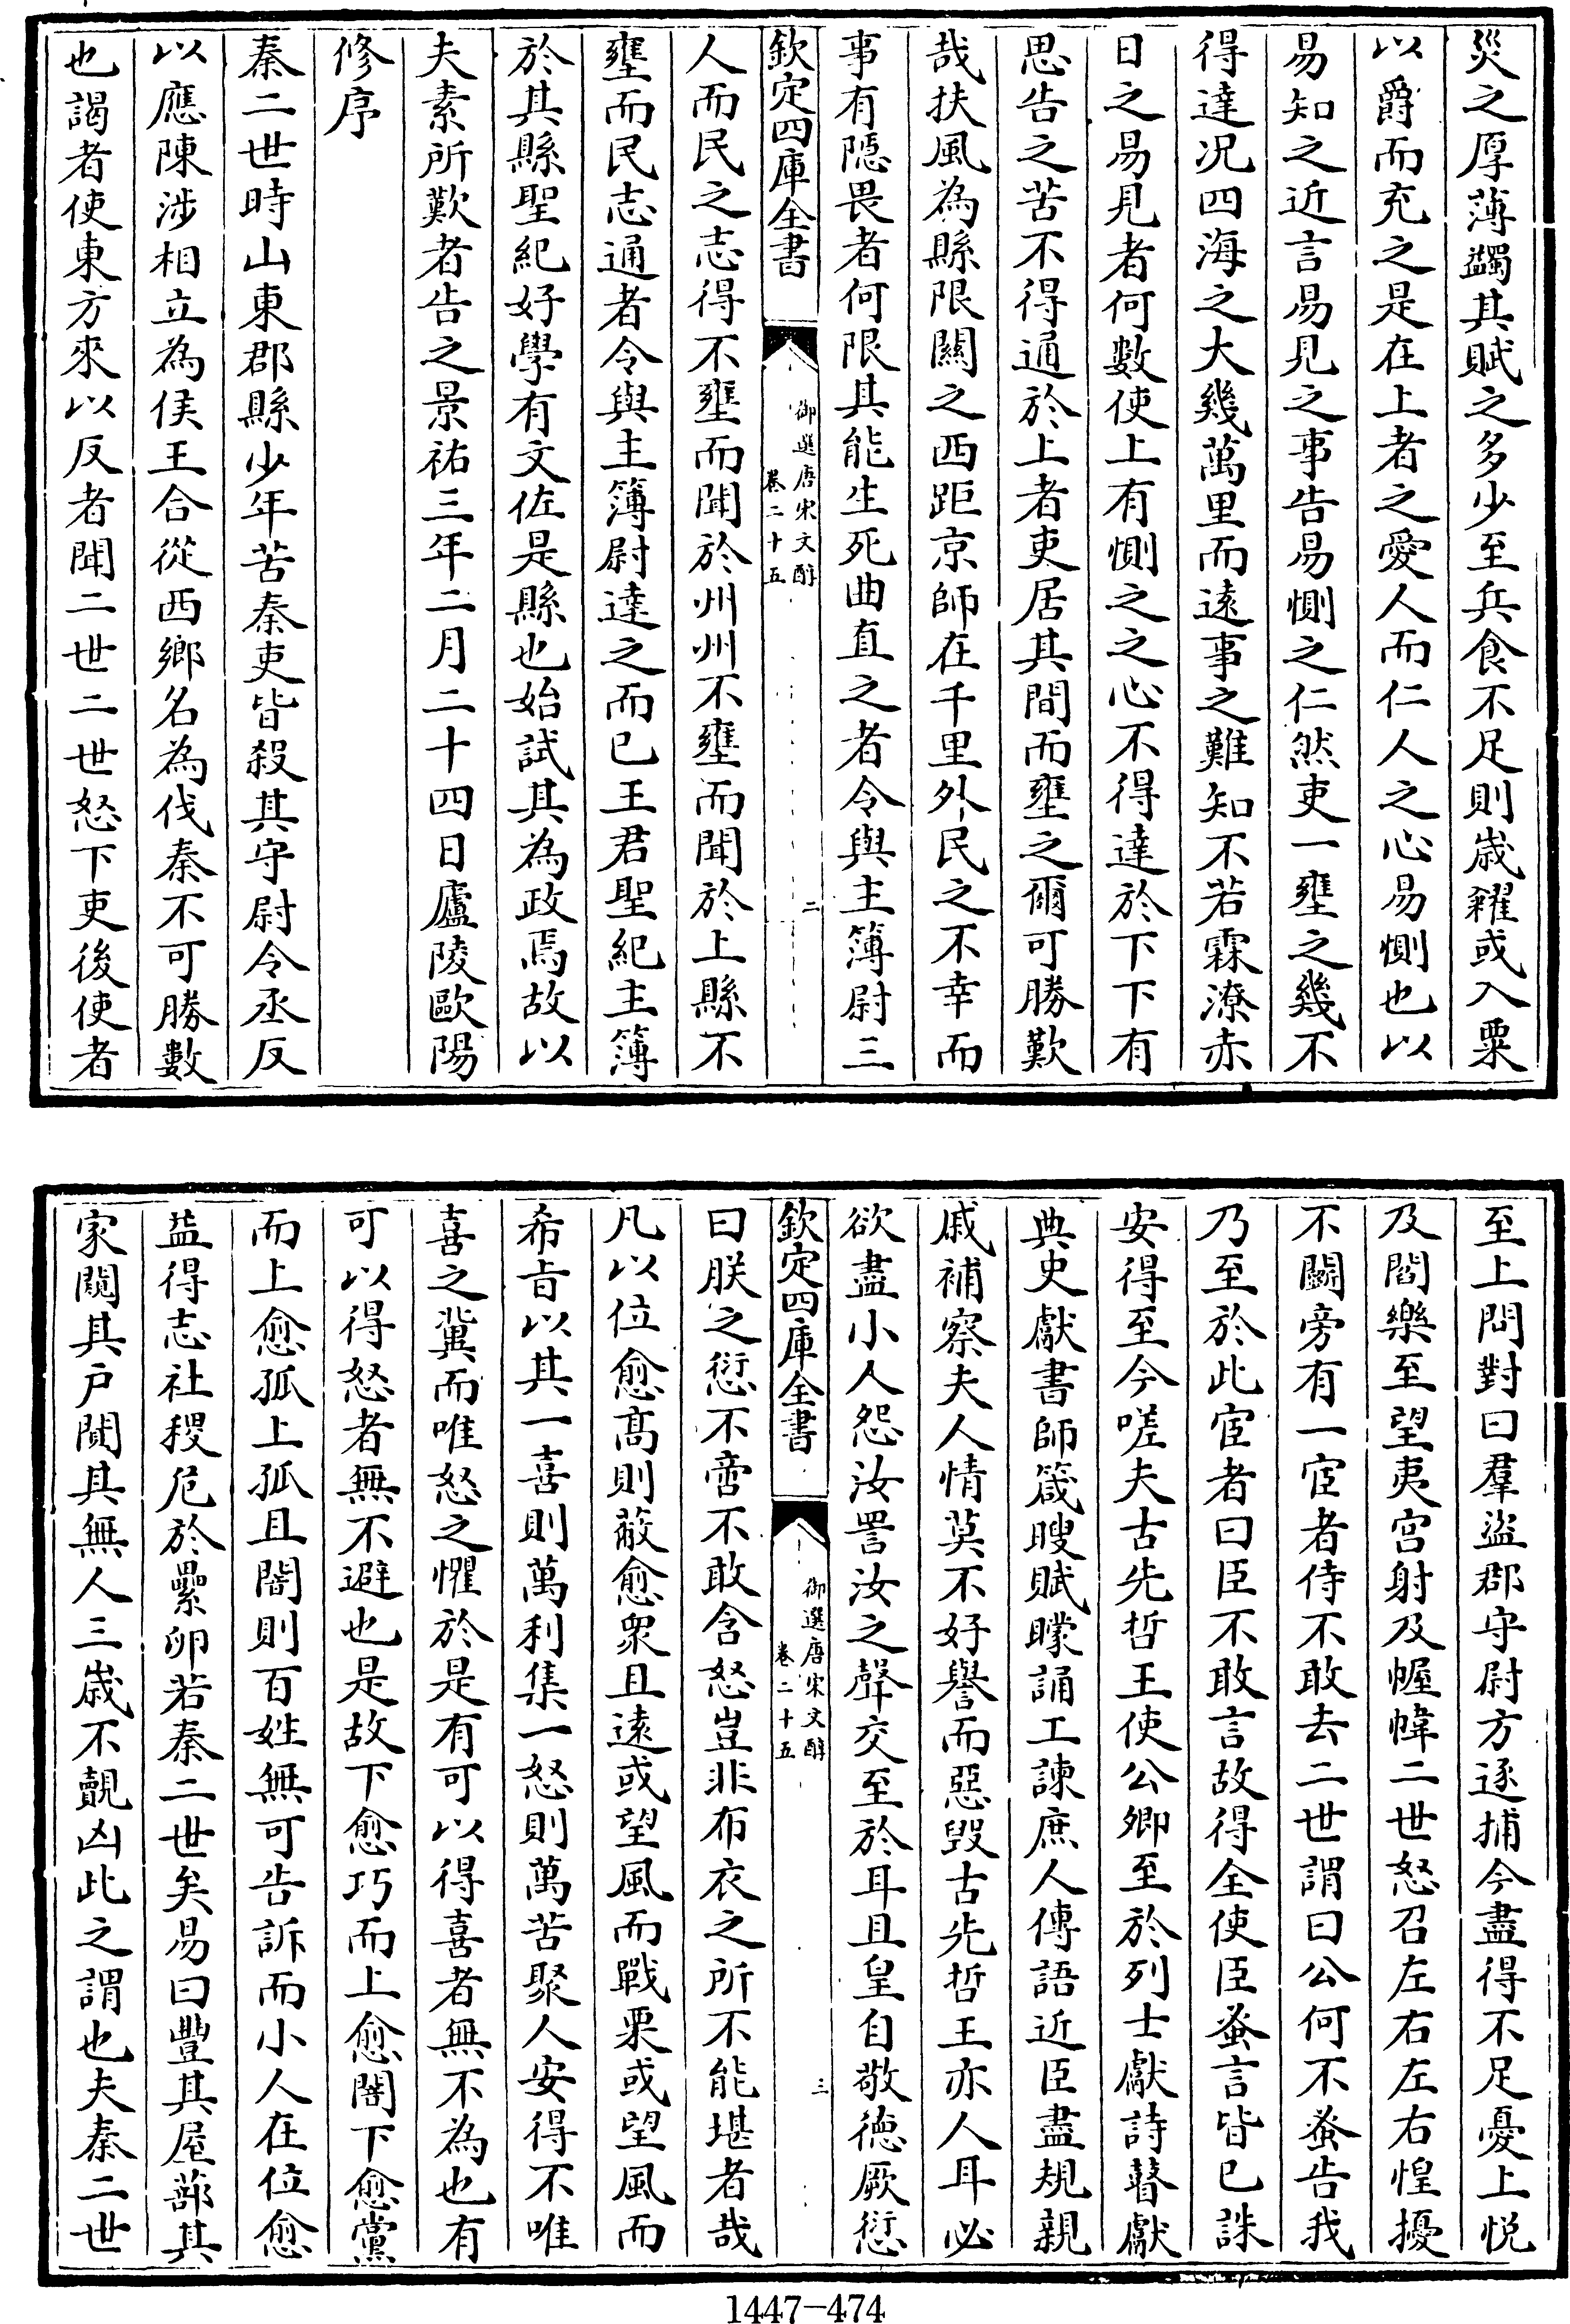 災之厚薄蠲其賦之多少至兵食不足則嵗糴或入粟
以爵而充之是在上者之愛人而仁人之心易惻也以
易知之近言易見之事告易惻之仁然吏一壅之幾不
得達况四海之大幾萬里而逺事之難知不若霖潦赤
日之易見者何數使上有惻之之心不得達於下下有
思告之苦不得通於上者吏居其間而壅之爾可勝歎
哉扶風為縣限闗之西距京師在千里外民之不幸而
事有隱畏者何限其能生死曲直之者令與主簿尉三
欽定四庫全書
御選唐宋文醇
卷二十五
二
人而民之志得不壅而聞於州州不壅而聞於上縣不
壅而民志通者令與主簿尉達之而已王君聖紀主簿
於其縣聖紀好學有文佐是縣也始試其為政焉故以
夫素所歎者告之景祐三年二月二十四日廬陵歐陽
修序
秦二世時山東郡縣少年苦秦吏皆殺其守尉令丞反
以應陳涉相立為侯王合從西鄉名為伐秦不可勝數
也謁者使東方來以反者聞二世二世怒下吏後使者
至上問對曰羣盜郡守尉方逐捕今盡得不足憂上悅
及閻樂至望夷宮射及幄幃二世怒召左右左右惶擾
不鬬旁有一宦者侍不敢去二世謂曰公何不蚤告我
乃至於此宦者曰臣不敢言故得全使臣蚤言皆已誅
安得至今嗟夫古先哲王使公卿至於列士獻詩瞽獻
典史獻書師箴瞍賦矇誦工諫庶人傳語近臣盡規親
戚補察夫人情莫不好譽而惡毁古先哲王亦人耳必
欲盡小人怨汝詈汝之聲交至於耳且皇自敬徳厥愆
欽定四庫全書
御選唐宋文醇
卷二十五
三
曰朕之愆不啻不敢含怒豈非布衣之所不能堪者哉
凡以位愈髙則蔽愈衆且逺或望風而戰栗或望風而
希㫖以其一喜則萬利集一怒則萬苦聚人安得不唯
喜之冀而唯怒之懼於是有可以得喜者無不為也有
可以得怒者無不避也是故下愈巧而上愈闇下愈黨
而上愈孤上孤且闇則百姓無可告訴而小人在位愈
益得志社稷危於纍卵若秦二世矣易曰豐其屋蔀其
家闚其户闃其無人三嵗不覿凶此之謂也夫秦二世
1447-474